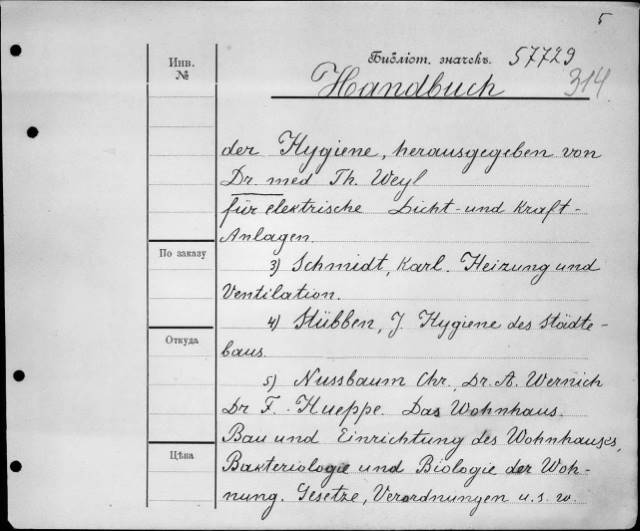 5
Инв.
№
Библіот. значекъ. 57729
Handbuch 314
der Hygiene, herausgegeben von
Dr. med Th. Weyl
für elektrische Licht- und Kraft-
Anlagen.
По заказу
3) Schmidt, Karl. Heizung und
Ventilation.
4) Stübben, J. Hygiene des Städte-
Откуда
baus.
5) Nussbaum Chr., Dr. A. Wernich
Dr F. Hueppe. Das Wohnhaus.
Bau und Einrichtung des Wohnhauses,
Цѣна
Bakteriologie und Biologie der Woh-
nung. Gesetze, Verordnungen u. s. w.